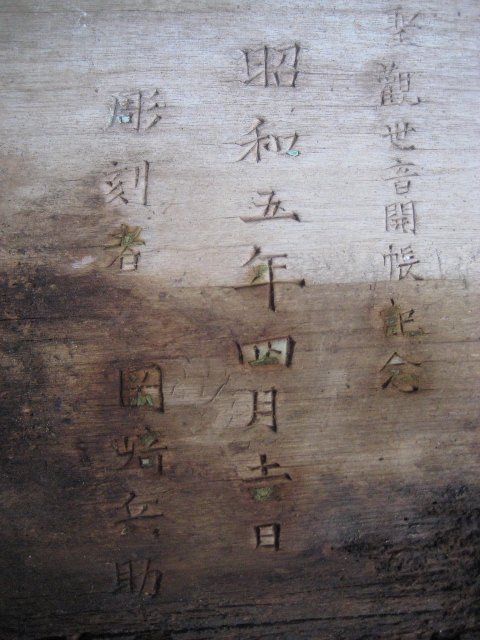 聖觀世音開帳記念
昭和五年四月吉日
彫刻者 岡崎兵助